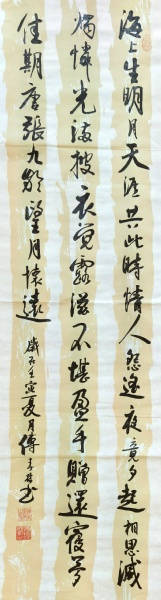 海上生明月天涯共此時情人怨遙夜竟夕起相思滅
燭憐光滿披衣覺露滋不堪盈手贈還寢夢
佳期唐張九齡望月懷遠
歲在壬寅夏月傅